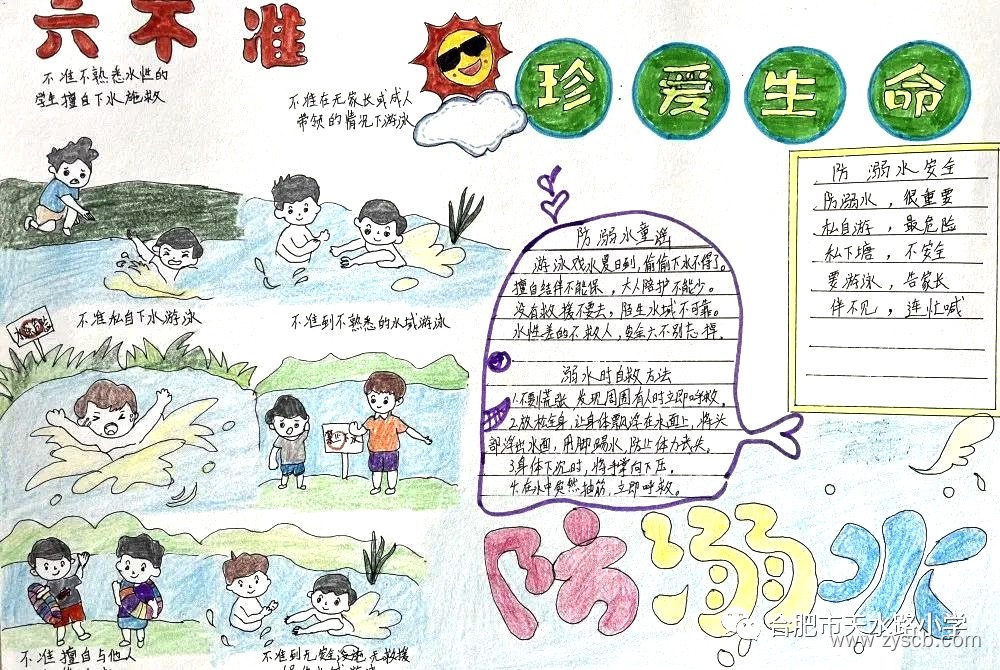 六不准
不准不熟悉水性的
学生擅自下水施救
不准在无家长或成人
带领的情况下游泳
珍爱生命
不准私自下水游泳
不准到不熟悉的水域游泳
不准擅自与他人
不准到无安全设施、无救援
防溺水童谣
游泳戏水夏日到,偷偷下水不得了。
擅自结伴不能保,大人陪护不能少。
没有救援不要去,陌生水域不可靠。
水性差的不救人,安全六不别忘掉。
溺水时自救方法
1.不要慌张,发现周围有人时立即呼救。
2.放松全身,让身体飘浮在水面上,将头
部浮出水面,用脚踢水,防止体力丧失。
3.身体下沉时,将手掌向下压。
4.在水中突然抽筋,立即呼救。
防溺水安全
防溺水,很重要
私自游,最危险
私下塘,不安全
要游泳,告家长
伴不见,连忙喊
防溺水
合肥市天水路小学
www.zyscb.com